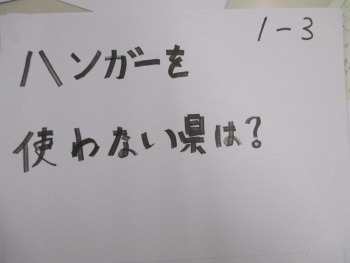 1-3
ハンガーを
使わない県は?